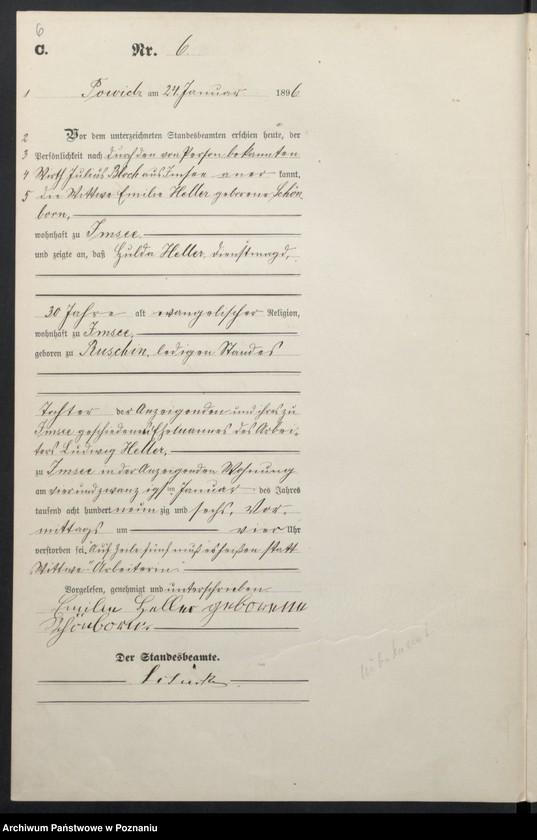 6
C.
Nr. 6.
1 Powidz am 24. Januar 1896
2 Vor dem unterzeichneten Standesbeamten erschien heute, der
3 Persönlichkeit nach durch den von Person bekannten
4 Wirth Julius Bloch aus Imsee anerkannt,
5 die Wittwe Emilie Heller geborene Schön
born,
wohnhaft zu Imsee
und zeigte an, daß Hulda Heller, Dienstmagd,
30 Jahre alt evangelischer Religion,
wohnhaft zu Imsee,
geboren zu Ruschin, ledigen Standes
Tochter der Anzeigenden und ihres zu
Imsee geschiedenen Ehemannes des Arbei-
ters Ludwig Heller,
zu Imsee in der Anzeigenden Wohnung
am vierundzwanzigsten Januar des Jahres
tausend acht hundert neunzig und sechs, Vor-
mittags um vier Uhr
verstorben sei. Auf Zeile fünf muß es heißen statt
Wittwe "Arbeiterin"
Vorgelesen, genehmigt und unterschrieben
Emilie Heller geborene
Schönborn.
Der Standesbeamte.
Archiwum Państwowe w Poznaniu